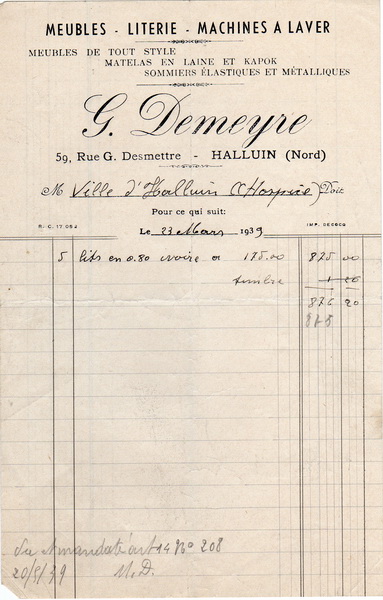 MEUBLES - LITERIE - MACHINES A LAVER
MEUBLES DE TOUT STYLE
MATELAS EN LAINE ET KAPOK
SOMMIERS ÉLASTIQUES ET MÉTALLIQUES
G. Demeyre
59, Rue G. Desmettre - HALLUIN (Nord)
M Ville d'Halluin (Hospice) Doit
Pour ce qui suit:
R. C. 17.052 IMP. DESCCS
Le 23 Mars 1939
5 lits en 0.80 ivoire a 175.00 875 00
timbre 1 20
876 20
875
mandaté art 14 No 208
20/5/39 M.D.